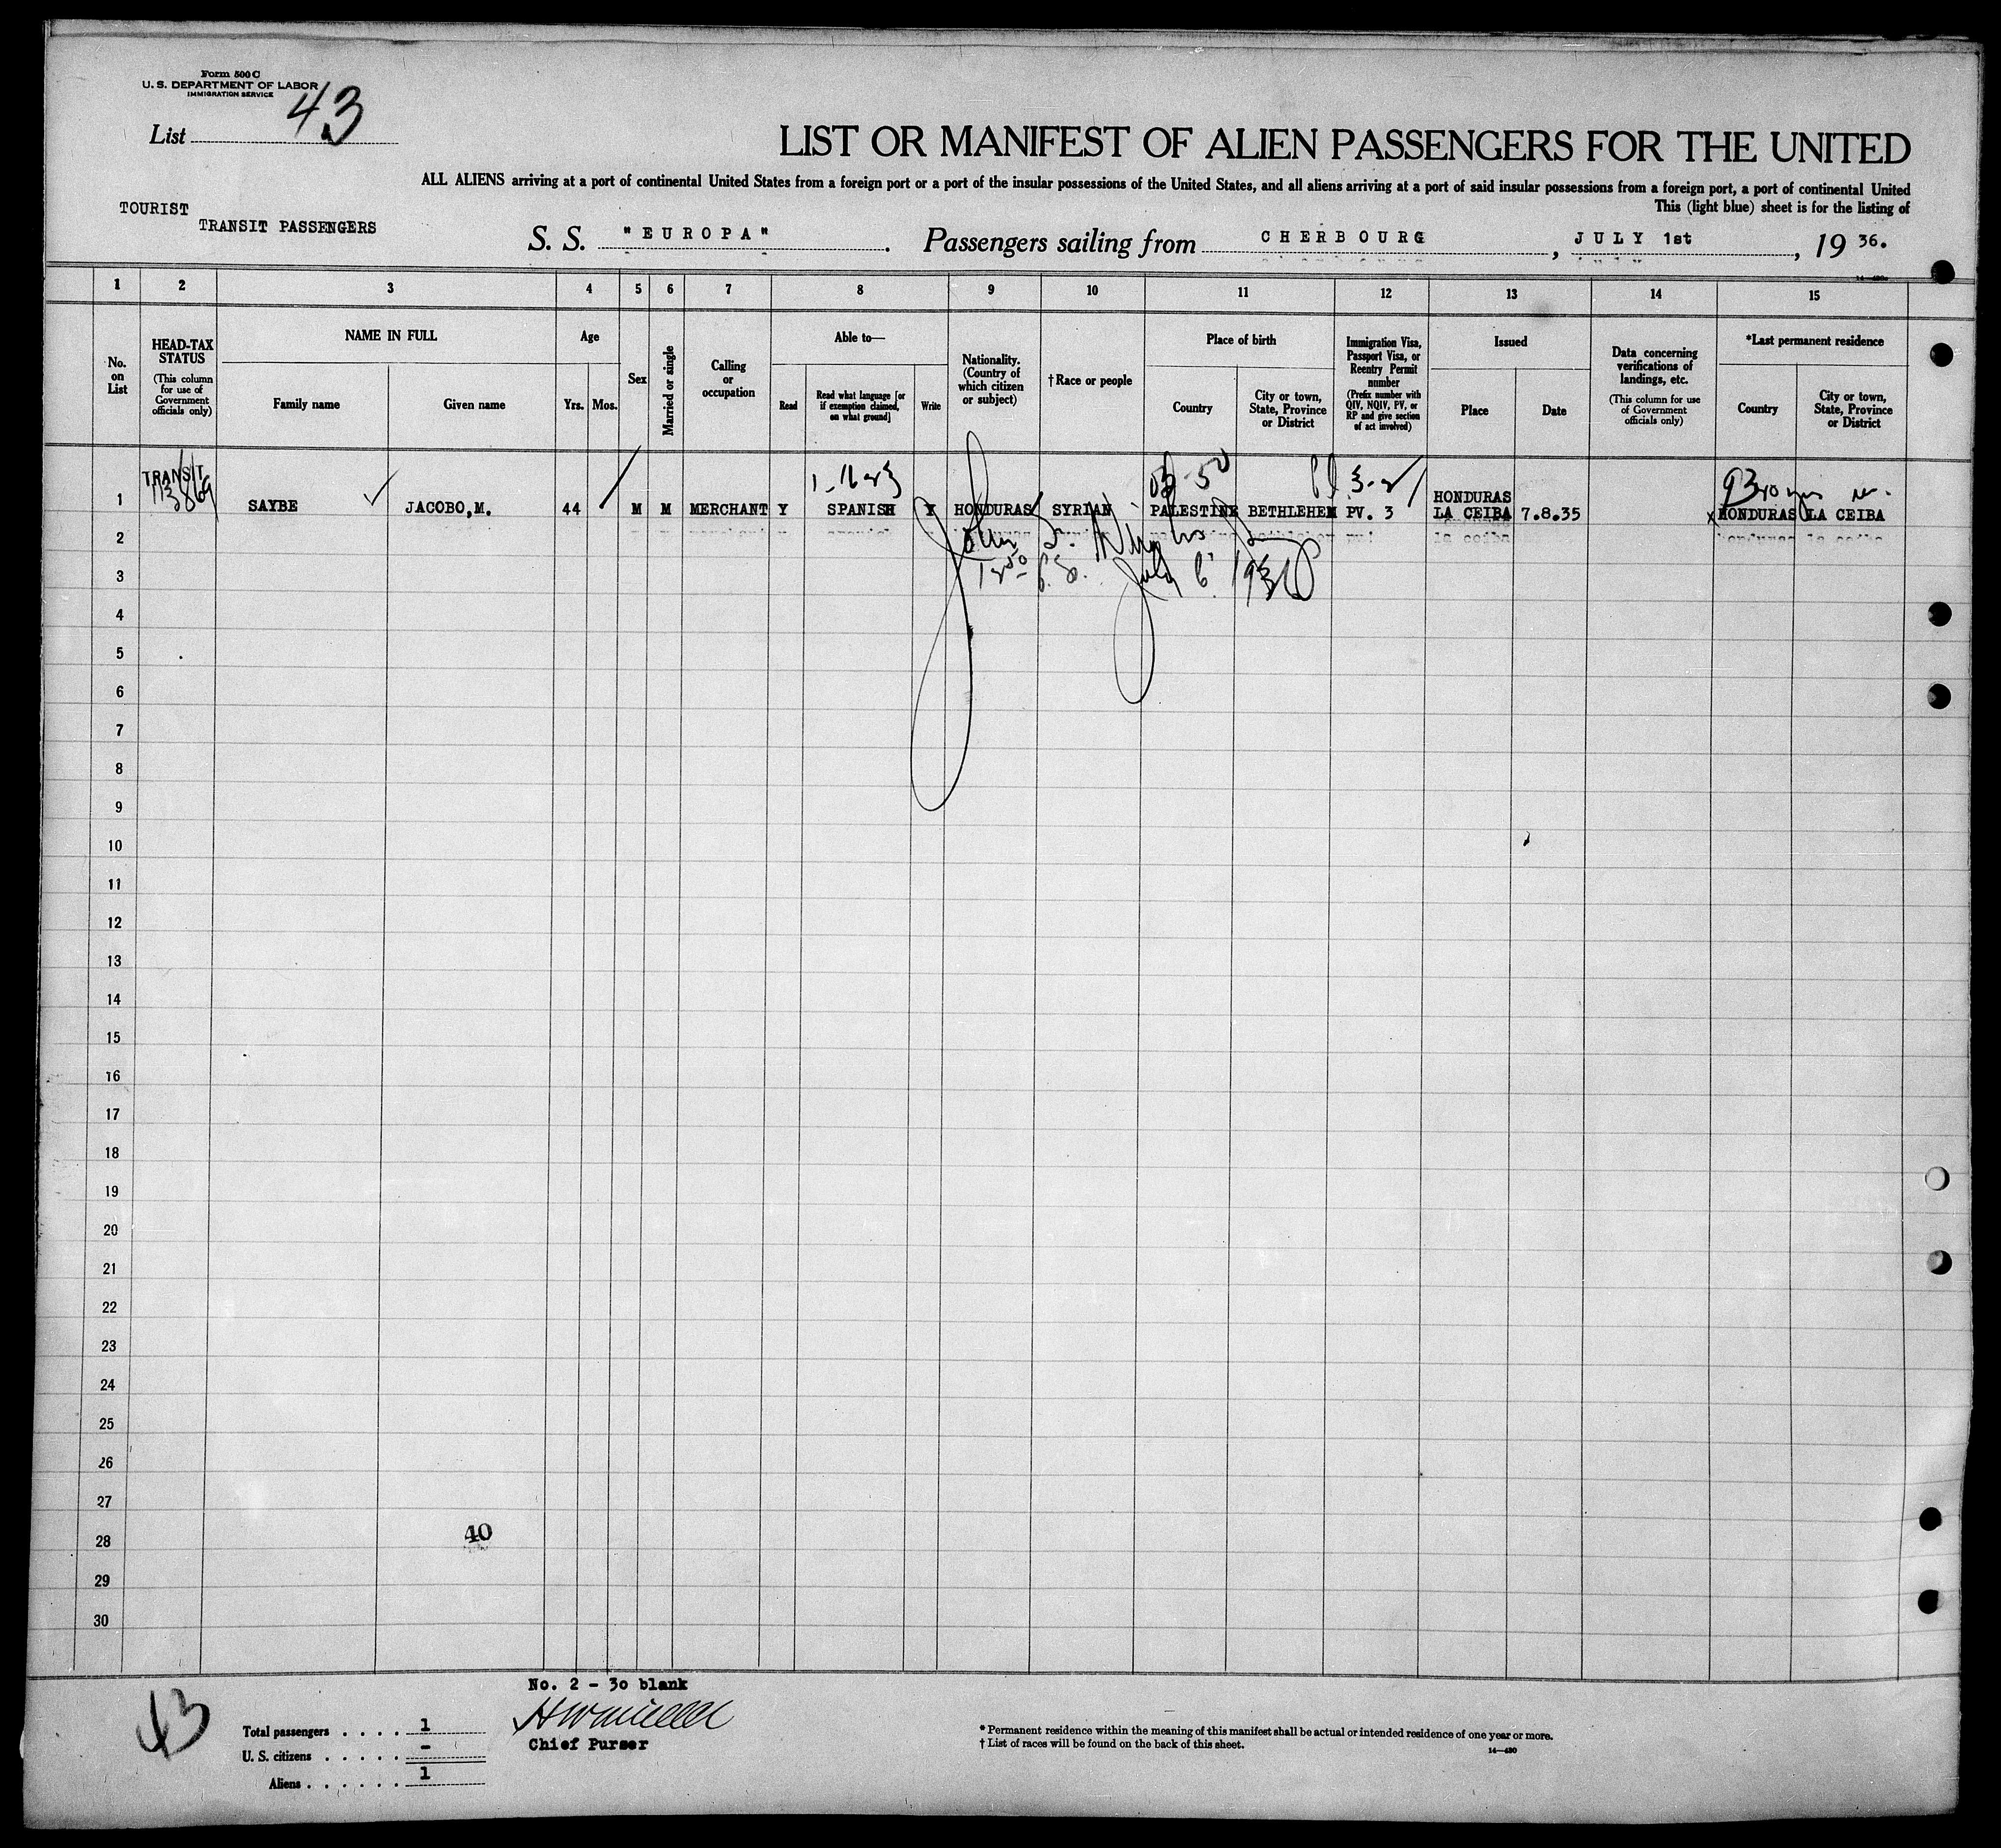 Form 500 C
U. S. DEPARTMENT OF LABOR
IMMIGRATION SERVICE
List 43
LIST OR MANIFEST OF ALIEN PASSENGERS FOR THE UNITED
ALL ALIENS arriving at a port of continental United States from a foreign port or a port of the insular possessions of the United States, and all aliens arriving at a port of said insular possessions from a foreign port, a port of continental United
This (light blue) sheet is for the listing of
TOURIST
TRANSIT PASSENGERS
S. S. "EUROPA". Passengers sailing from CHERBOURG, JULY 1st, 19 36.
1 2 3 4 5 6 7 8 9 10 11 12 13 14 15
No. on List
HEAD-TAX STATUS (This column for use of Government officials only)
NAME IN FULL
Family name
Given name
Age
Yrs. Mos.
Sex
Married or single
Calling or occupation
Able to—
Read
Read what language [or if exemption claimed, on what ground]
Write
Nationality. (Country of which citizen or subject)
† Race or people
Place of birth
Country
City or town, State, Province or District
Immigration Visa, Passport Visa, or Reentry Permit number (Prefix number with QIV, NQIV, PV, or RP and give section of act involved)
Issued
Place
Date
Data concerning verifications of landings, etc. (This column for use of Government officials only)
*Last permanent residence
Country
City or town, State, Province or District
1 TRANSIT SAYBE JACOBO,M. 44 M M MERCHANT Y SPANISH Y HONDURAS SYRIAN PALESTINE BETHLEHEM PV. 3 HONDURAS LA CEIBA 7.8.35 x HONDURAS LA CEIBA
2
3 July 6 1936
4
5
6
7
8
9
10
11
12
13
14
15
16
17
18
19
20
21
22
23
24
25
26
27
28 40
29
30
No. 2 - 30 blank
43
Total passengers . . . . 1
U. S. citizens . . . . . -
Aliens . . . . . . 1
Chief Purser
* Permanent residence within the meaning of this manifest shall be actual or intended residence of one year or more.
† List of races will be found on the back of this sheet.
14—480